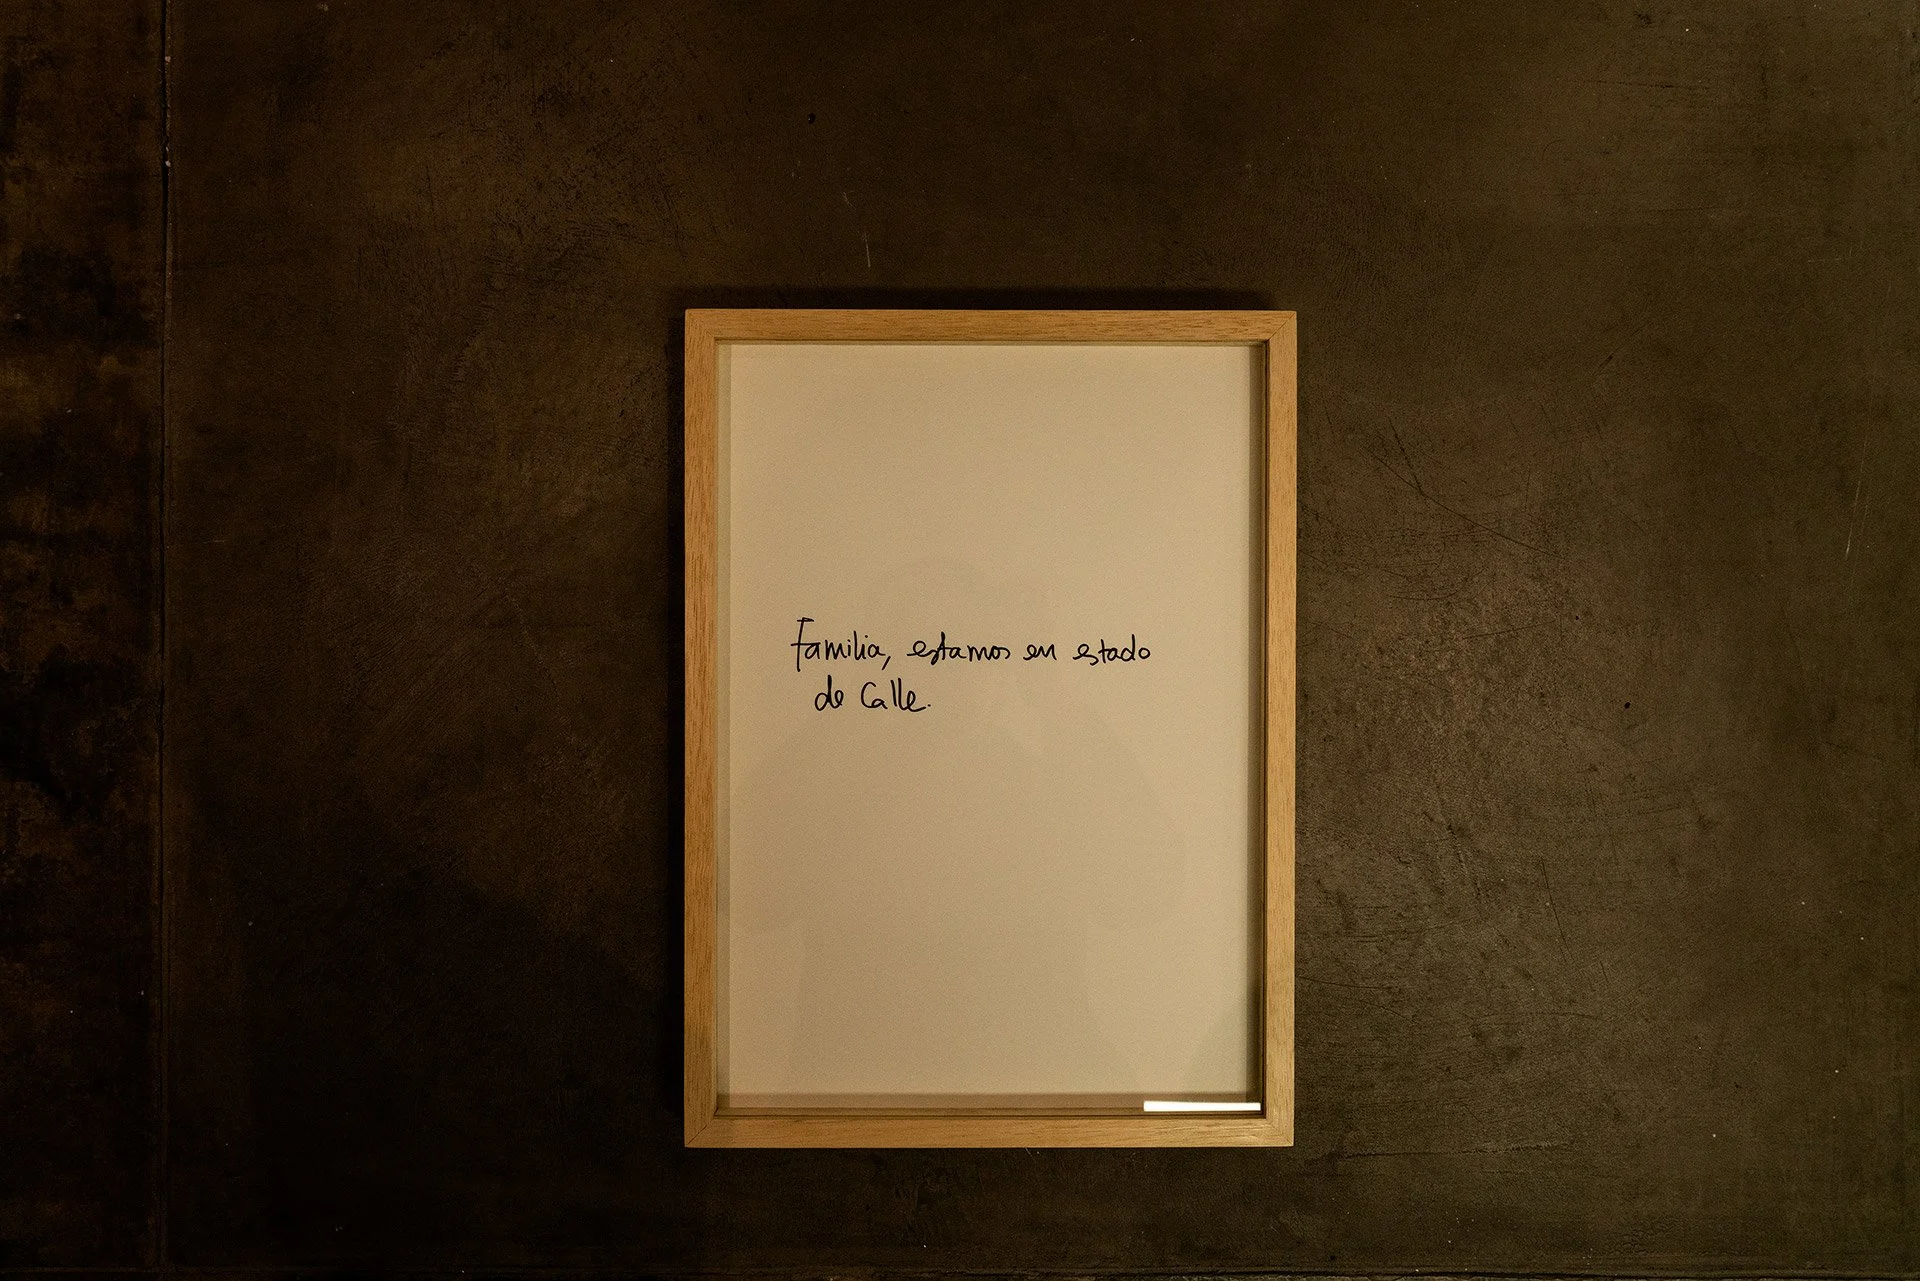 Familia, estamos en estado
de Calle.